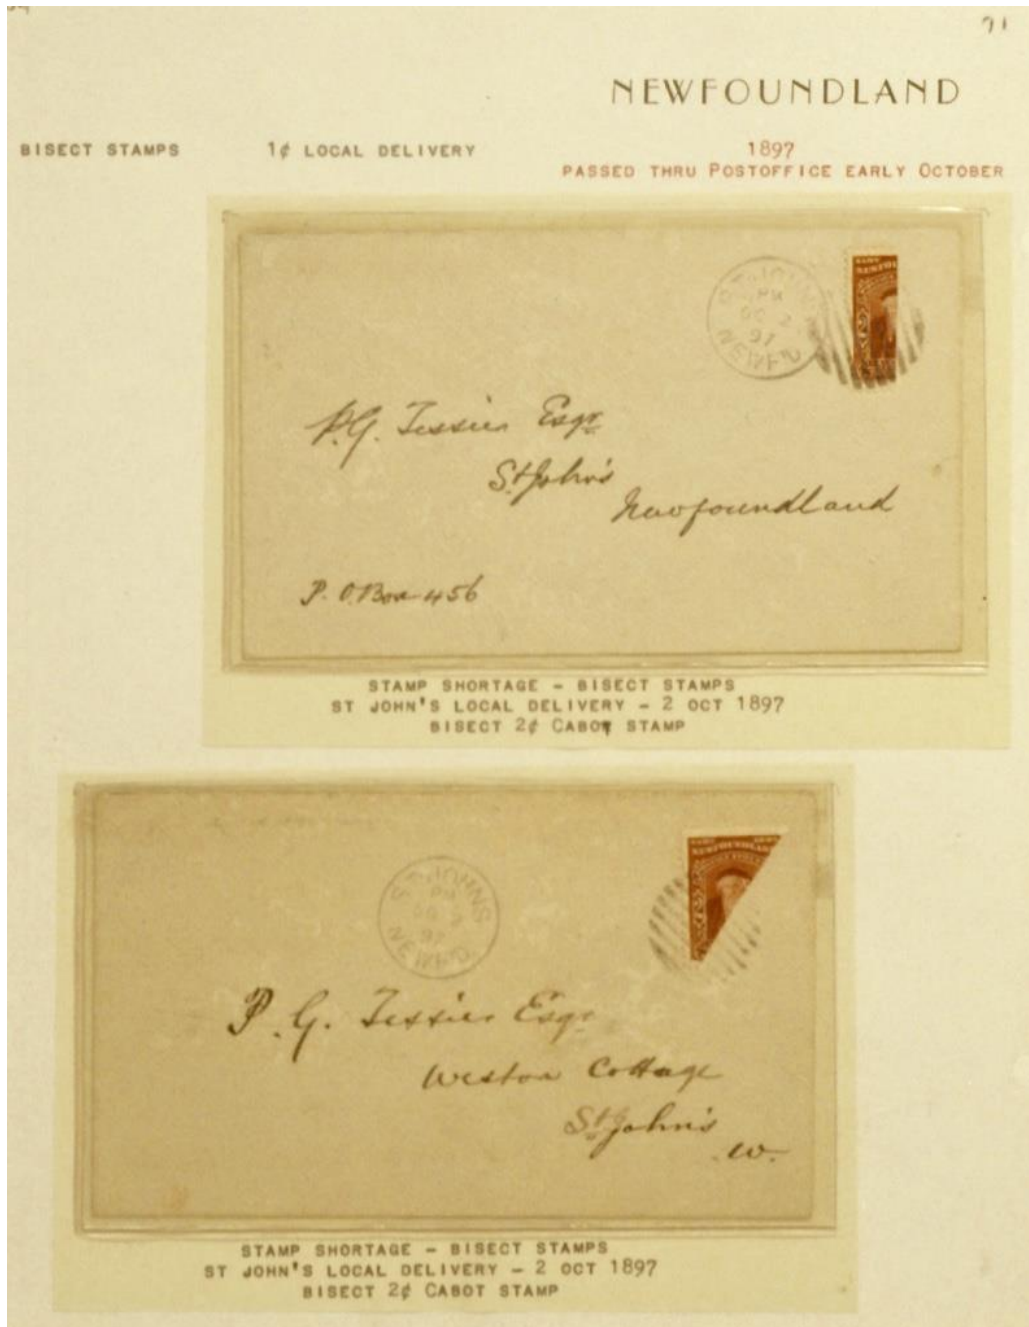 71
NEWFOUNDLAND
BISECT STAMPS 1¢ LOCAL DELIVERY 1897
PASSED THRU POSTOFFICE EARLY OCTOBER
ST. JOHN'S
PM
OC 2
97
NEWF'D
NEWFOUN
P.G. Tessier Esqr
St John's
Newfoundland
P.O. Box 456
STAMP SHORTAGE - BISECT STAMPS
ST JOHN'S LOCAL DELIVERY - 2 OCT 1897
BISECT 2¢ CABOT STAMP
NEWFOUNDLAND
ST. JOHN'S
PM
OC 2
97
NEWF'D
P. G. Tessier Esqr
Weston Cottage
St John's
W.
STAMP SHORTAGE - BISECT STAMPS
ST JOHN'S LOCAL DELIVERY - 2 OCT 1897
BISECT 2¢ CABOT STAMP